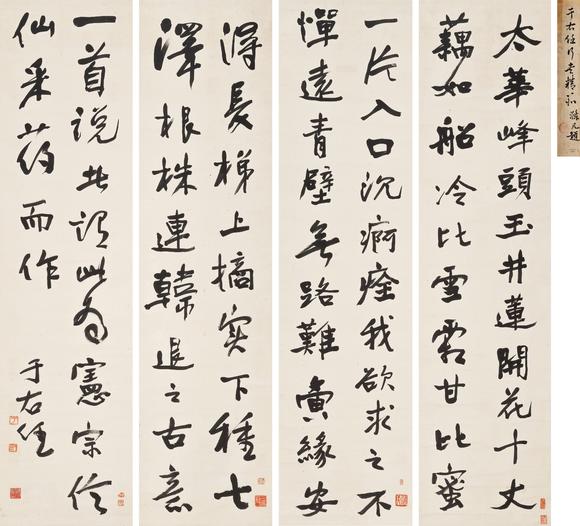 太華峰頭玉井蓮開花十丈
藕如船冷比雪霜甘比蜜
一片入口沉痾痊我欲求之不
憚遠青壁無路難夤緣安
得長梯上摘实下種七
澤根株連韓退之古意
一首説者謂此為憲宗信
仙采药而作
于右任
于右任行書